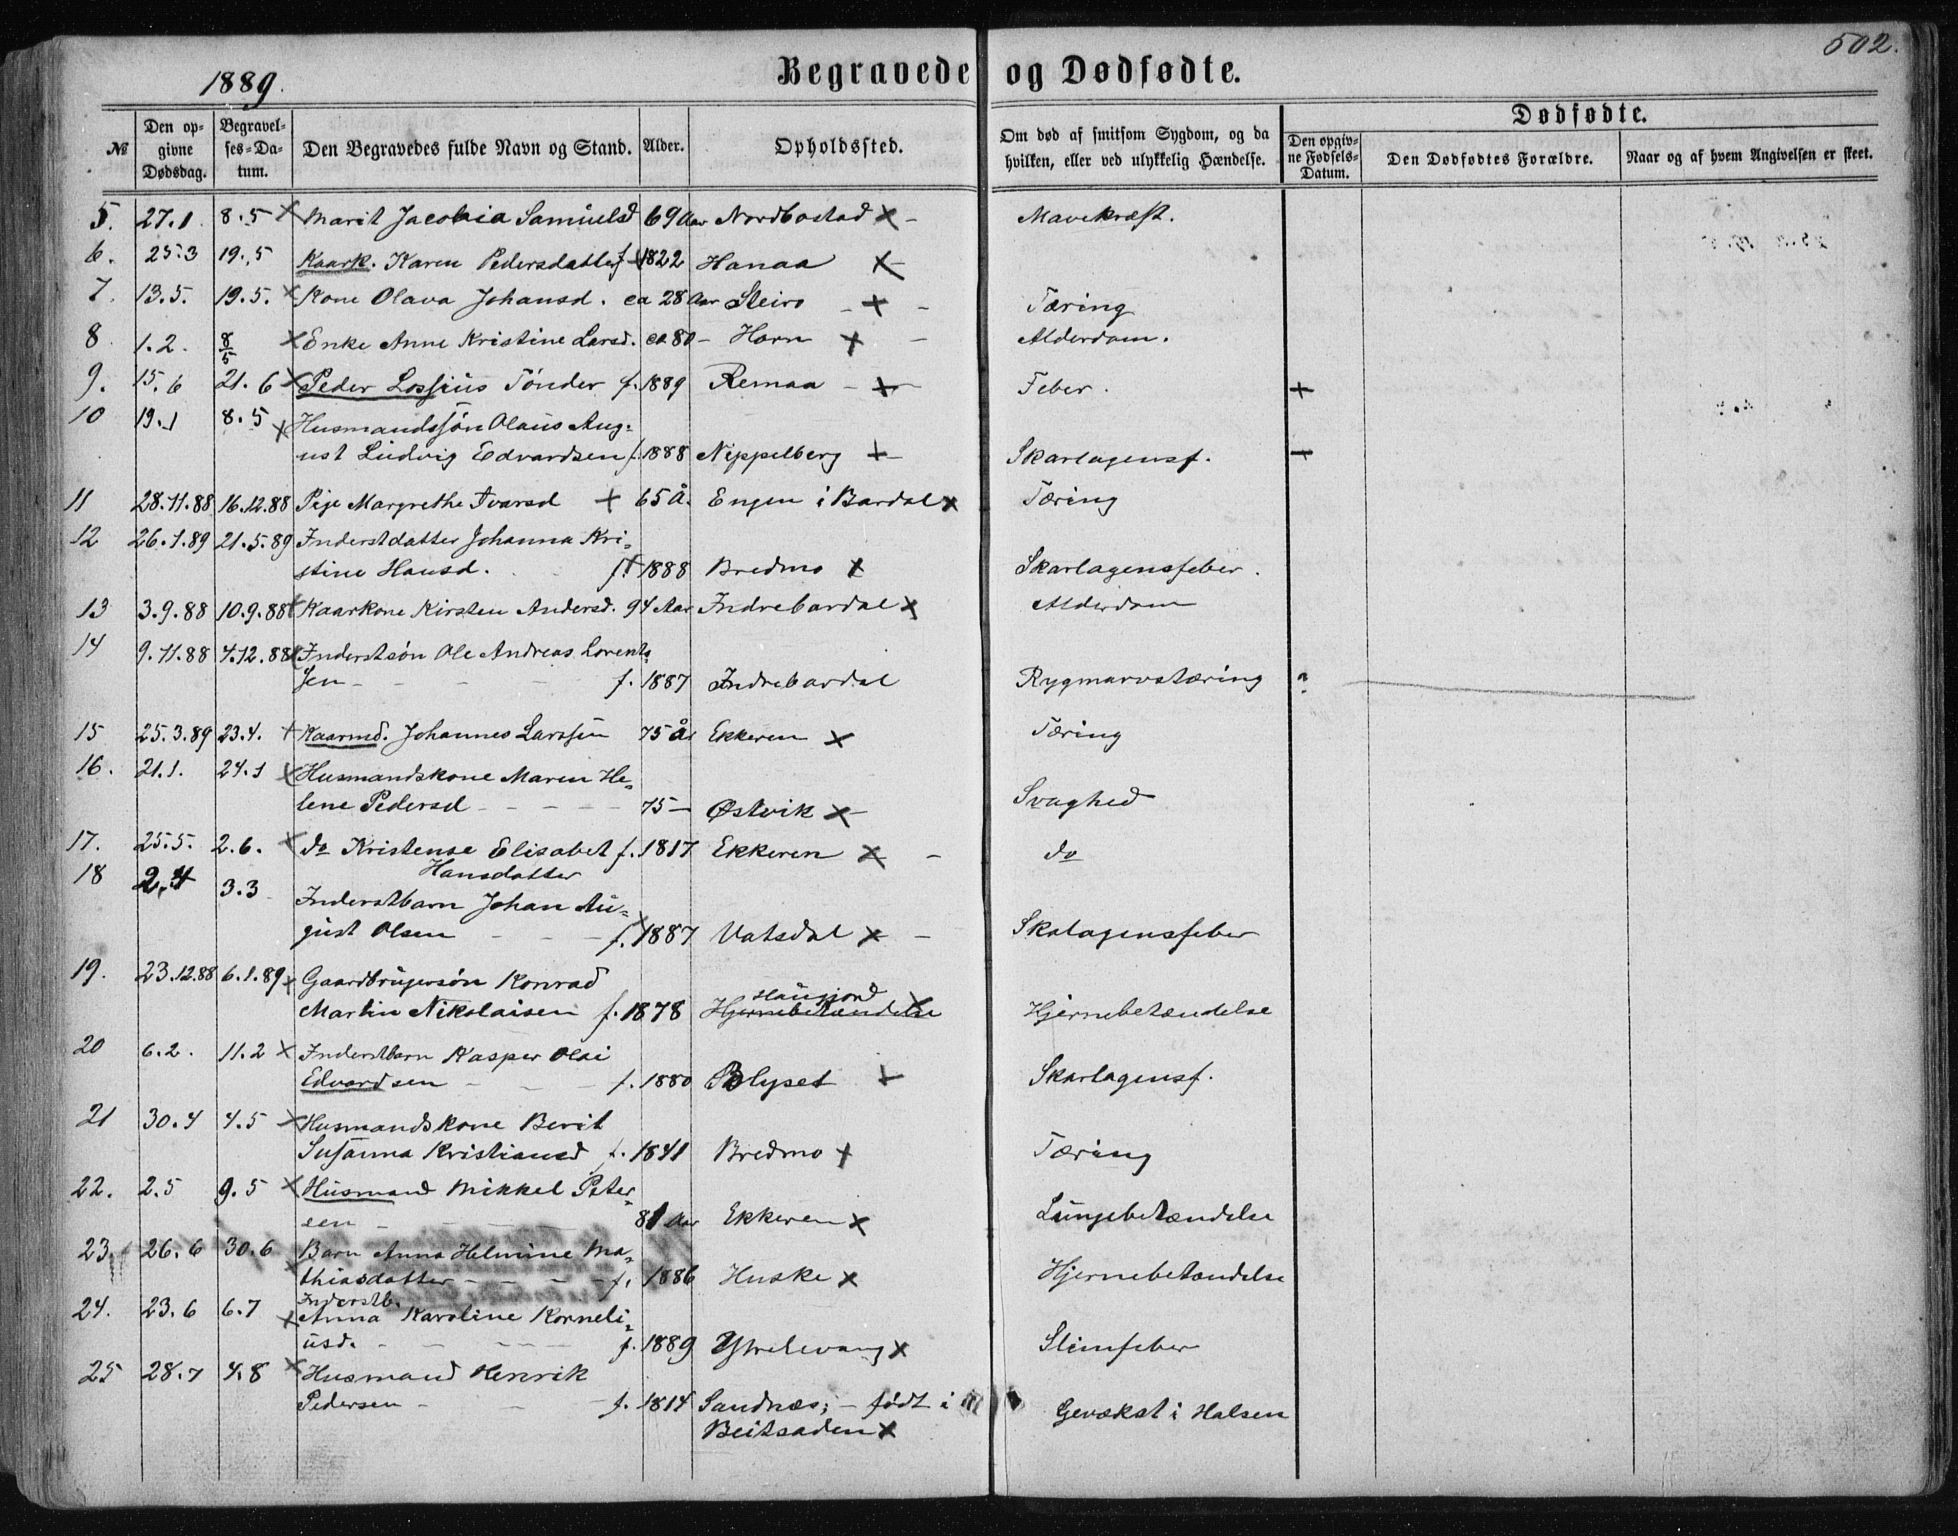 502.
1889.
Begravede og Dødfødte.
№ Den op-givne Dødsdag. Begravel-ses-Da-tum. Den Begravedes fulde Navn og Stand. Alder. Opholdssted. Om død af smitsom Sygdom, og da hvilken, eller ved ulykkelig Hændelse. Dødfødte. Den opgiv-ne Fødsels-Datum. Den Dødfødtes Forældre. Naar og af hvem Angivelsen er skeet.
5. 27.1. 8.5 × Marit Jacobia Samuelsd 69 Aar Nordbostad × - Mavekræft.
6. 25.3 19.5 Kaark. Karen Pedersdatter f 1822 Hanaa ×
7. 13.5. 19.5. × Kone Olava Johansd. ca 28 Aar Steiro - + - Tæring
8 1.2. 8/5 × Enke Anne Kristine Larsd. ca 80 - Horn + - Alderdom.
9. 15.6 21.6 × Peder Lossius Tønder f. 1889 Remaa - + Feber. +
10 19.1 8.5 × Husmandssøn Olaus Aug-
ust Ludvig Edvardsen f. 1888 Nippelberg + Skarlagensf. +
11 28.11.88 16.12.88 Pige Margrethe Ivarsd + 65 Å. Engen i Bardal × Tæring
12 26.1.89 21.5.89 Inderstdatter Johanna Kri-
stine Hansd. f. 1888 Bredmo × Skarlagensfeber.
13 3.9.88 10.9.88 Kaarkone Kirsten Andersd. 94 Aar Indrebardal × Alderdom
14 9.11.88 4.12.88 Inderstsøn Ole Andreas Lorent-
sen - - - f. 1887 Indrebardal Rygmarvstæring
15 25.3.89 23.4. + Kaarmd. Johannes Larssen 75 Å Ekkeren × Tæring
16. 21.1. 24.1 × Husmandskone Maren He-
lene Pedersd - - - - 75 - Østvik × Svaghed
17. 25.5. 2.6. × do Kristense Elisabet f. 1817 Ekkeren × - do
Hansdatter
18 2.4 3.3 Inderstbarn Johan Au-
gust Olsen - - - f. 1887 Vatsdal × - Skalagensfeber
19. 23.12.88 6.1.89 × Gaardbrugersøn Konrad
Haugjord
Martin Nikolaisen f. 1878 Hjernebetændelse × Hjernebetændelse
20 6.2. 11.2 × Inderstbarn Kasper Olai
Edvardsen - - - f. 1880 Blyset + Skarlagensf.
21 30.4 4.5 × Husmandskone Berit
Susanna Kristiansd f. 1841 Bredmo + Tæring
22. 2.5 9.5 × Husmand Mikkel Peter-
sen - 81 Aar Ekkeren × Lungebetændelse
23. 26.6 30.6 Barn Anna Helmine Ma-
thiasdatter - - - - f. 1886 Huske × Hjernebetændelse
Inderstb.
24. 23.6 6.7 × Anna Karoline Korneli-
usd. - - - - f. 1889 Ytrelevang × Slimfeber
25 28.7 4.8 × Husmand Henrik
Pedersen - - - f. 1814 Sandnæs; - født i Gevækst i Halsen
Beitsaden ×